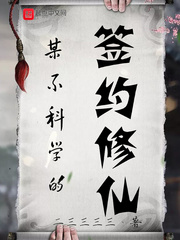 某不科学的
签约修仙
二三三三三·著